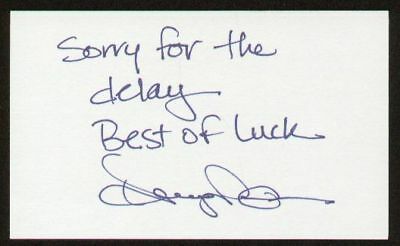 Sorry for the
delay
Best of Luck